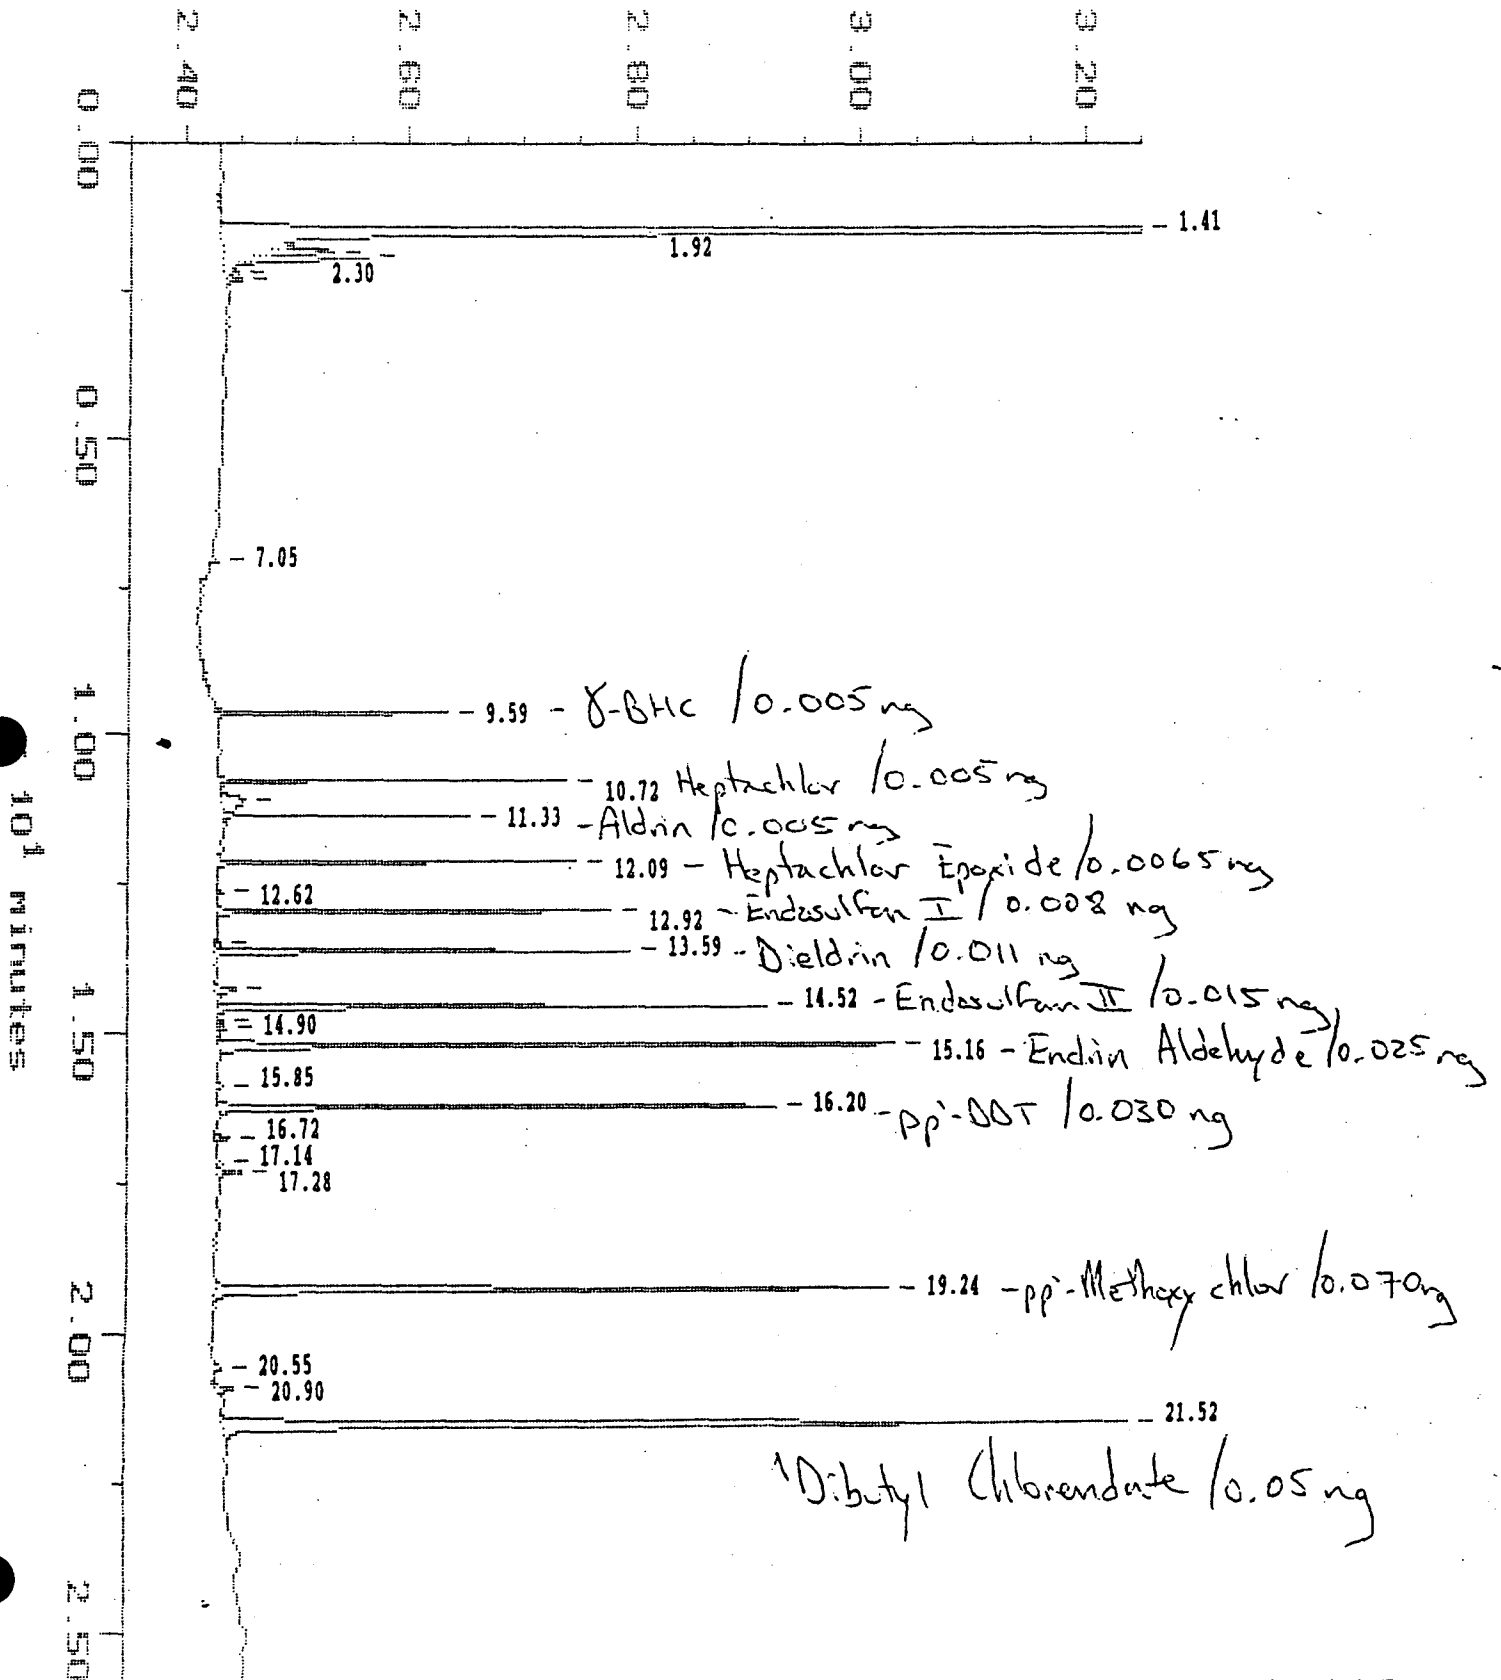 2.40 2.60 2.80 3.00 3.20
0.00
1.41
1.92
2.30
0.50
7.05
9.59 - γ-BHC /0.005 ng
1.00
10.72 Heptachlor /0.005 ng
11.33 - Aldrin /0.005 ng
12.09 - Heptachlor Epoxide /0.0065 ng
12.62
12.92 - Endosulfan I / 0.008 ng
13.59 - Dieldrin /0.011 ng
14.52 - Endosulfan II /0.015 ng
14.90
1.50
15.16 - Endrin Aldehyde /0.025 ng
15.85
16.20 - pp'-DDT /0.030 ng
16.72
17.14
17.28
19.24 - pp'-Methoxychlor /0.070 ng
2.00
20.55
20.90
21.52
Dibutyl Chlorendate /0.05 ng
2.50
10¹ minutes